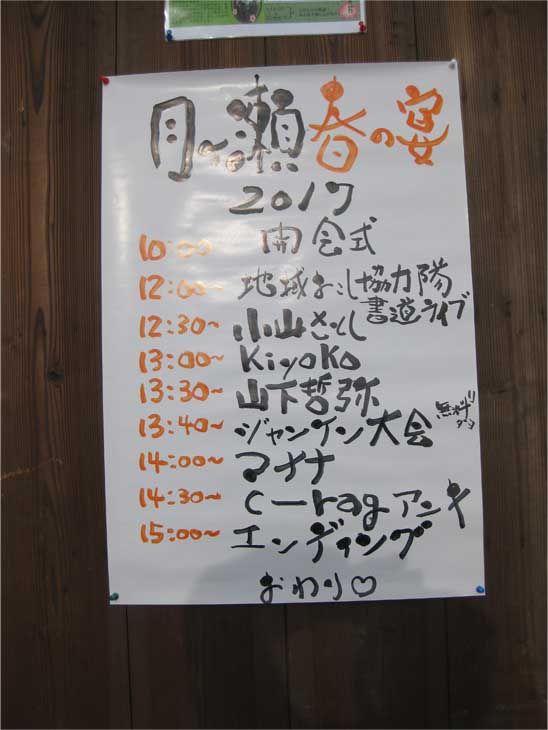 月ヶ瀬春の宴
2017
10:00 開会式
12:00~ 地域おこし協力隊
書道ライブ
12:30~ 小山さとし
13:00~ Kiyoko
13:30~ 山下哲弥
13:40~ ジャンケン大会
14:00~ マナナ
14:30~ C-ragアンキ
15:00~ エンディング
おわり♡